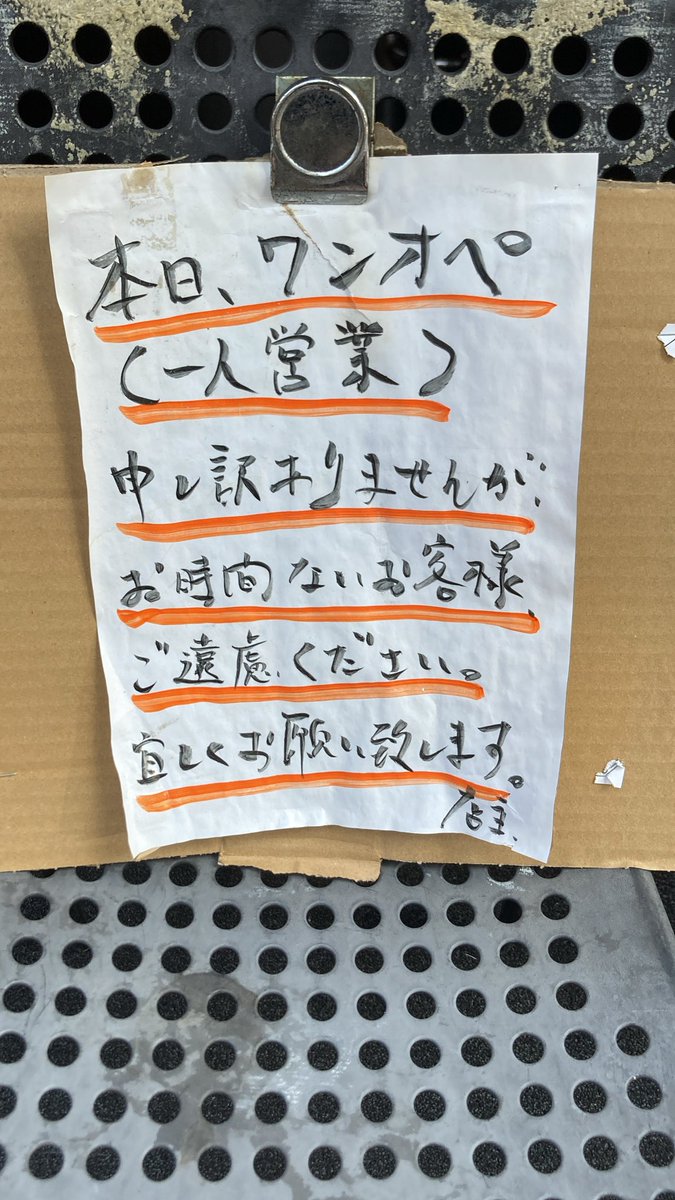 本日、ワンオペ
(一人営業)
申し訳ありませんが、
お時間ないお客様、
ご遠慮ください。
宜しくお願い致します。
店主、